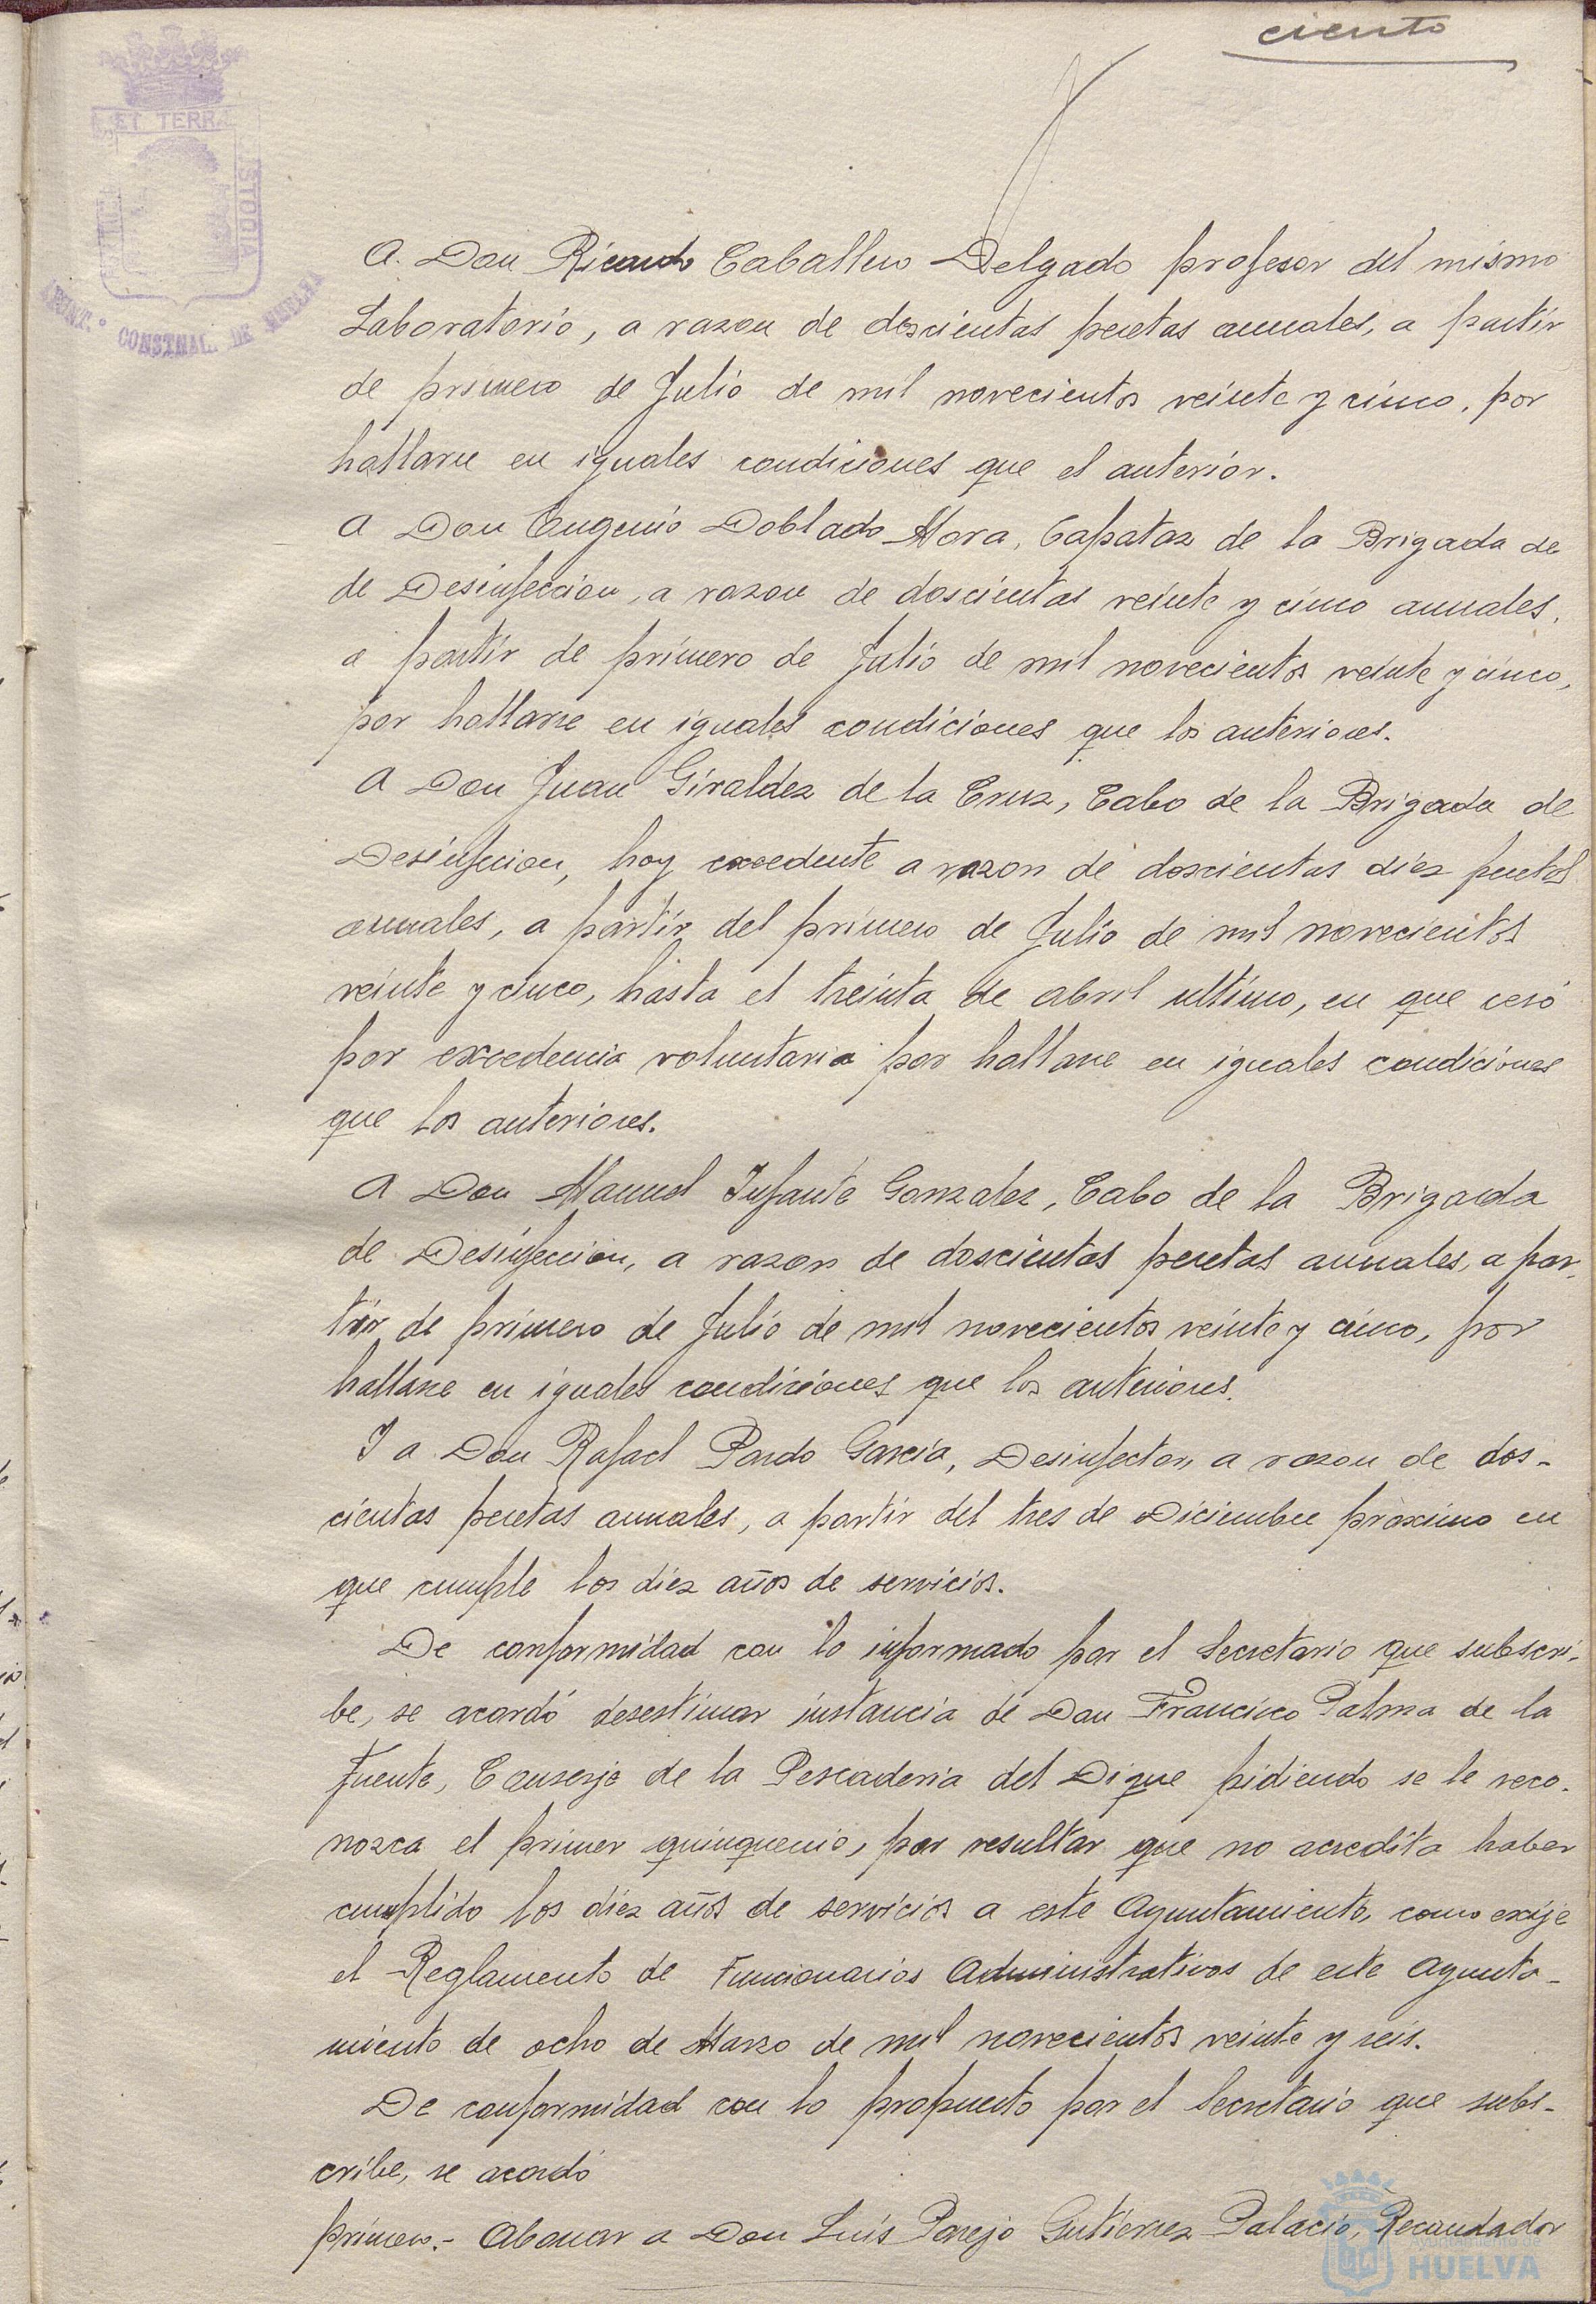 ciento
ET TERR
STODIA
AYUNT.º CONSTNAL. DE HUELVA
A. Don Ricardo Caballero Delgado profesor del mismo
Laboratorio, a razon de doscientas pesetas anuales, a partir
de primero de Julio de mil novecientos veinte y cinco, por
hallarse en iguales condiciones que el anterior.
A Don Eugenio Doblado Mora, Capataz de la Brigada de
de Desinfeccion, a razon de doscientas veinte y cinco anuales,
a partir de primero de Julio de mil novecientos veinte y cinco,
por hallarse en iguales condiciones que los anteriores.
A Don Juan Giraldez de la Cruz, Cabo de la Brigada de
Desinfeccion, hoy excedente a razon de doscientas diez pesetas
anuales, a partir del primero de Julio de mil novecientos
veinte y cinco, hasta el treinta de abril ultimo, en que cesó
por excedencia voluntaria por hallarse en iguales condiciones
que los anteriores.
A Don Manuel Infante Gonzalez, Cabo de la Brigada
de Desinfeccion, a razon de doscientas pesetas anuales, a par-
tir de primero de Julio de mil novecientos veinte y cinco, por
hallarse en iguales condiciones que los anteriores.
Y a Don Rafael Pardo Garcia, Desinfector, a razon de dos-
cientas pesetas anuales, a partir del tres de Diciembre próximo en
que cumple los diez años de servicios.
De conformidad con lo informado por el Secretario que subscri-
be, se acordó desestimar instancia de Don Francisco Palma de la
Fuente, Conserje de la Pescaderia del Dique pidiendo se le reco-
nozca el primer quinquenio, por resultar que no acredita haber
cumplido los diez años de servicios a este Ayuntamiento, como exije
el Reglamento de Funcionarios Administrativos de este Ayunta-
miento de ocho de Marzo de mil novecientos veinte y seis.
De conformidad con lo propuesto por el Secretario que subs-
cribe, se acordó
primero.- Abonar a Don Luis Parejo Gutierrez Palacio, Recaudador
Ayuntamiento de
HUELVA